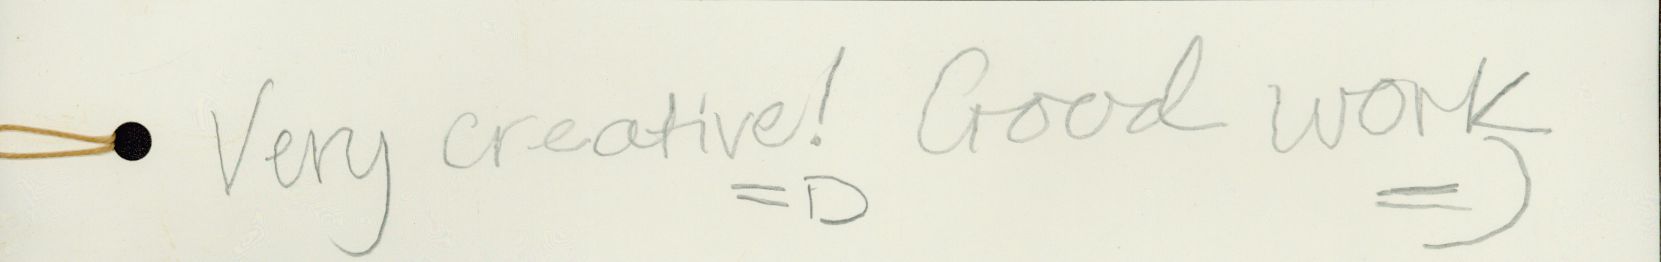 Very creative! Good work
=D =)